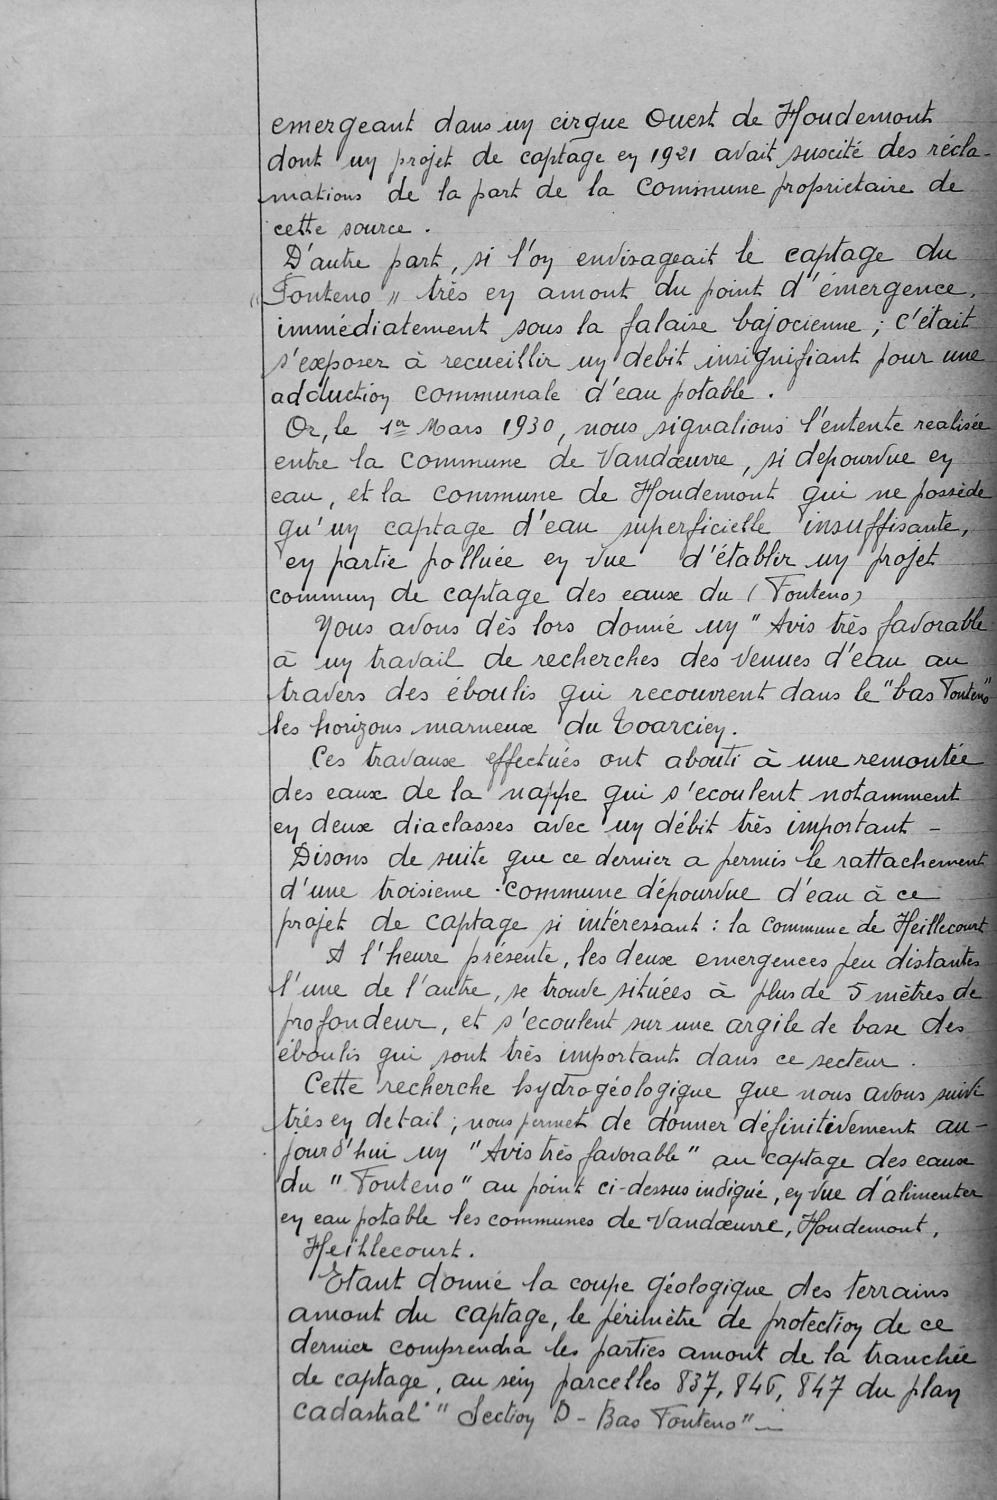 emergeant dans un cirque Ouest de Houdemont
dont un projet de captage en 1921 avait suscité des récla-
mations de la part de la Commune proprietaire de
cette source.
D'autre part, si l'on envisageait le captage du
"Fonteno" très en amont du point d'émergence,
immédiatement sous la falaise bajocienne ; c'était
s'exposer à recueillir un debit insignifiant pour une
adduction communale d'eau potable.
Or, le 1er Mars 1930, nous signalions l'entente realisée
entre la Commune de Vandœuvre, si depourvue en
eau, et la Commune de Houdemont qui ne possède
qu'un captage d'eau superficielle insuffisante,
en partie polluée en vue d'établir un projet
commun de captage des eaux du (Fonteno)
Nous avons dès lors donné un "Avis très favorable
à un travail de recherches des venues d'eau au
travers des éboulis qui recouvrent dans le "bas Fonteno"
les horizons marneux du Toarcien.
Ces travaux effectués ont abouti à une remontée
des eaux de la nappe qui s'ecoulent notamment
en deux diaclasses avec un débit très important -
Disons de suite que ce dernier a permis le rattachement
d'une troisieme Commune dépourvue d'eau à ce
projet de captage si intéressant : la Commune de Heillecourt
A l'heure présente, les deux emergences peu distantes
l'une de l'autre, se trouve situées à plus de 5 mètres de
profondeur, et s'ecoulent sur une argile de base des
éboulis qui sont très important dans ce secteur.
Cette recherche hydrogéologique que nous avons suivi
très en detail ; nous permet de donner définitivement au-
jourd'hui un "Avis très favorable" au captage des eaux
du "Fonteno" au point ci-dessus indiqué, en vue d'alimenter
en eau potable les communes de Vandœuvre, Houdemont,
Heillecourt.
Etant donné la coupe géologique des terrains
amont du captage, le périmètre de protection de ce
dernier comprendra les parties amont de la tranchée
de captage, au sein parcelles 837, 846, 847 du plan
cadastral "Section D - Bas Fonteno" -